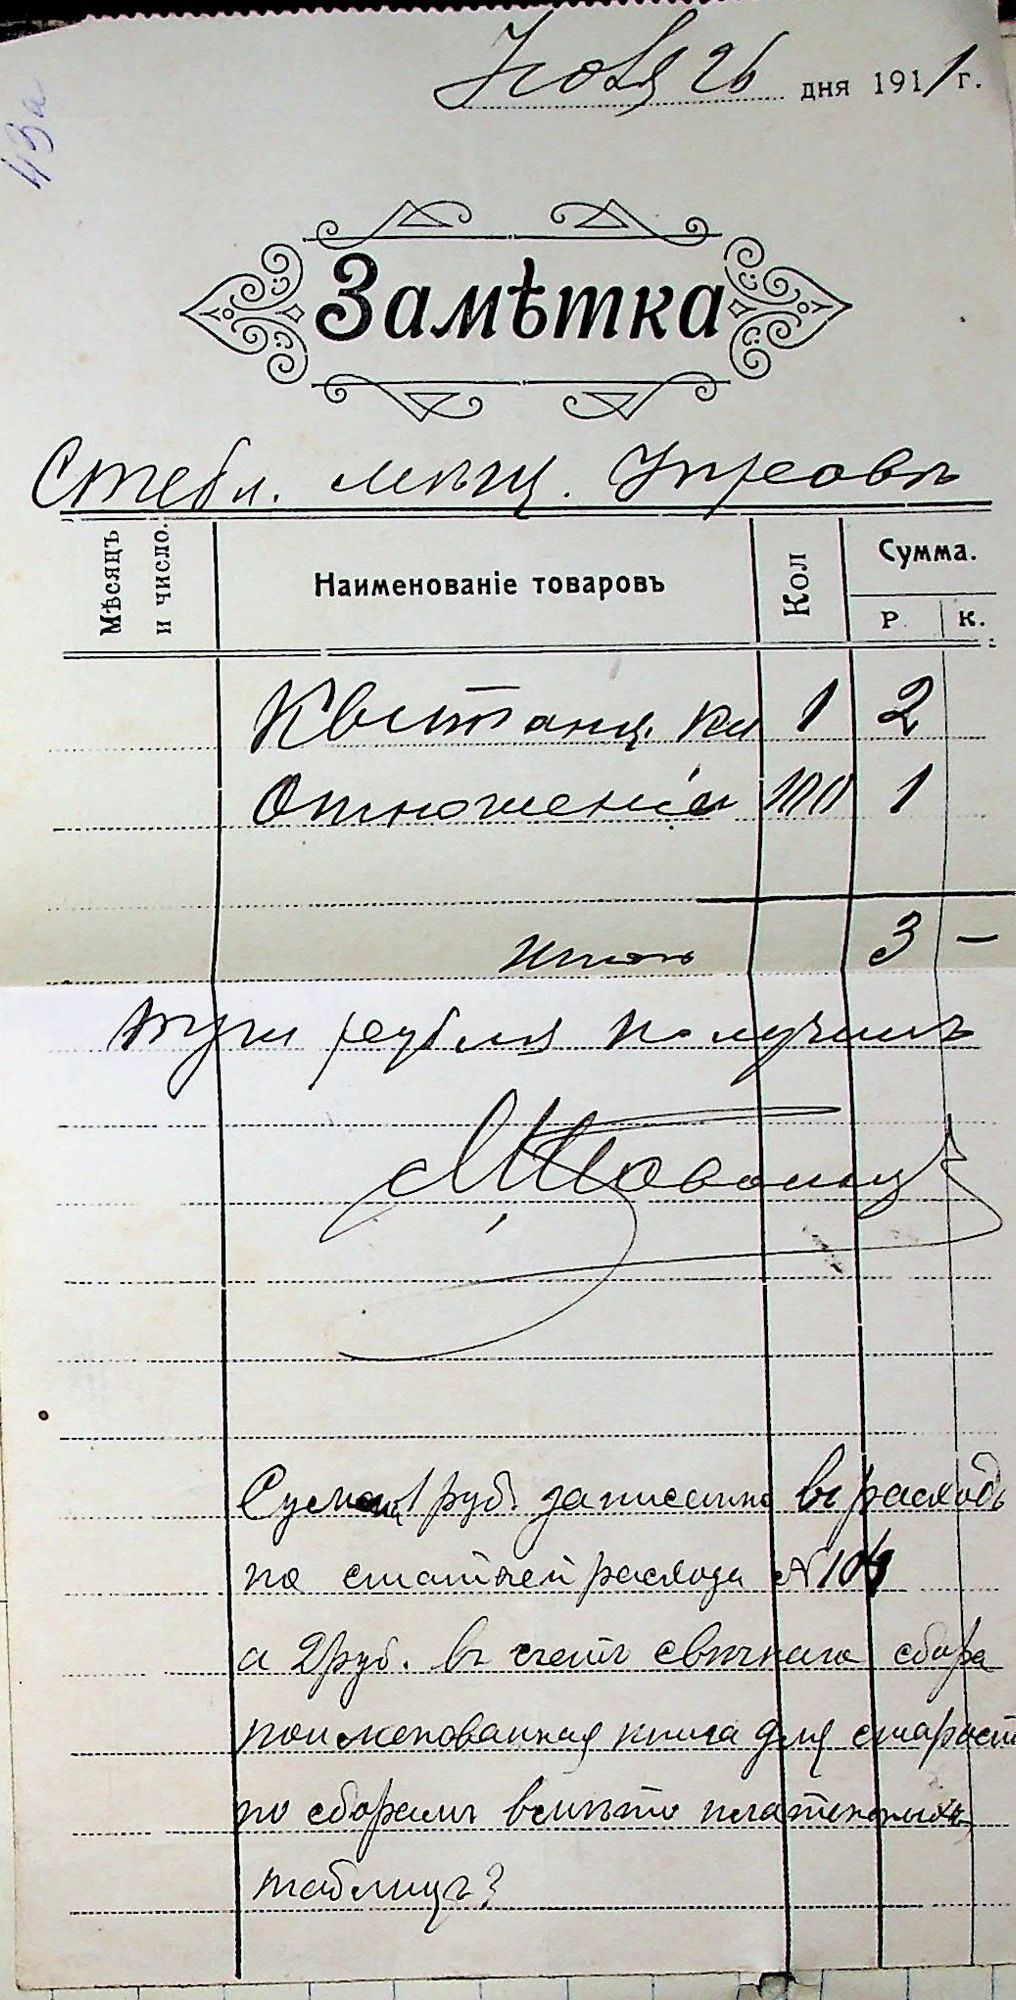 43а
Ноября 26 дня 1911 г.
Замѣтка
Стебл. мѣщ. Управѣ
Мѣсяцъ и число.
Наименованіе товаровъ
Кол
Сумма.
Р. К.
Квитанц. кн 1 2
Отношеніи 100 1
Итого 3 —
три рубля получилъ
Сумма 1 руб. записана въ расходъ
по статьей расхода №
а 2 руб. въ счетъ свѣчнаго сбора
поименованная книга для старост
по сборамъ вмѣсто платежныхъ
таблицъ?